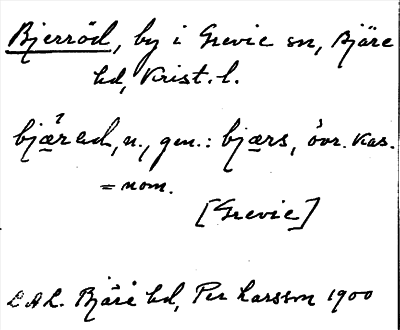 Bjerröd, by i Grevie sn, Bjäre
hd, Krist. l.
bjæred, n., gen.: bjærs, övr. kas.
= nom.
[Grevie]
L A L. Bjäre hd, Per Larsson 1900